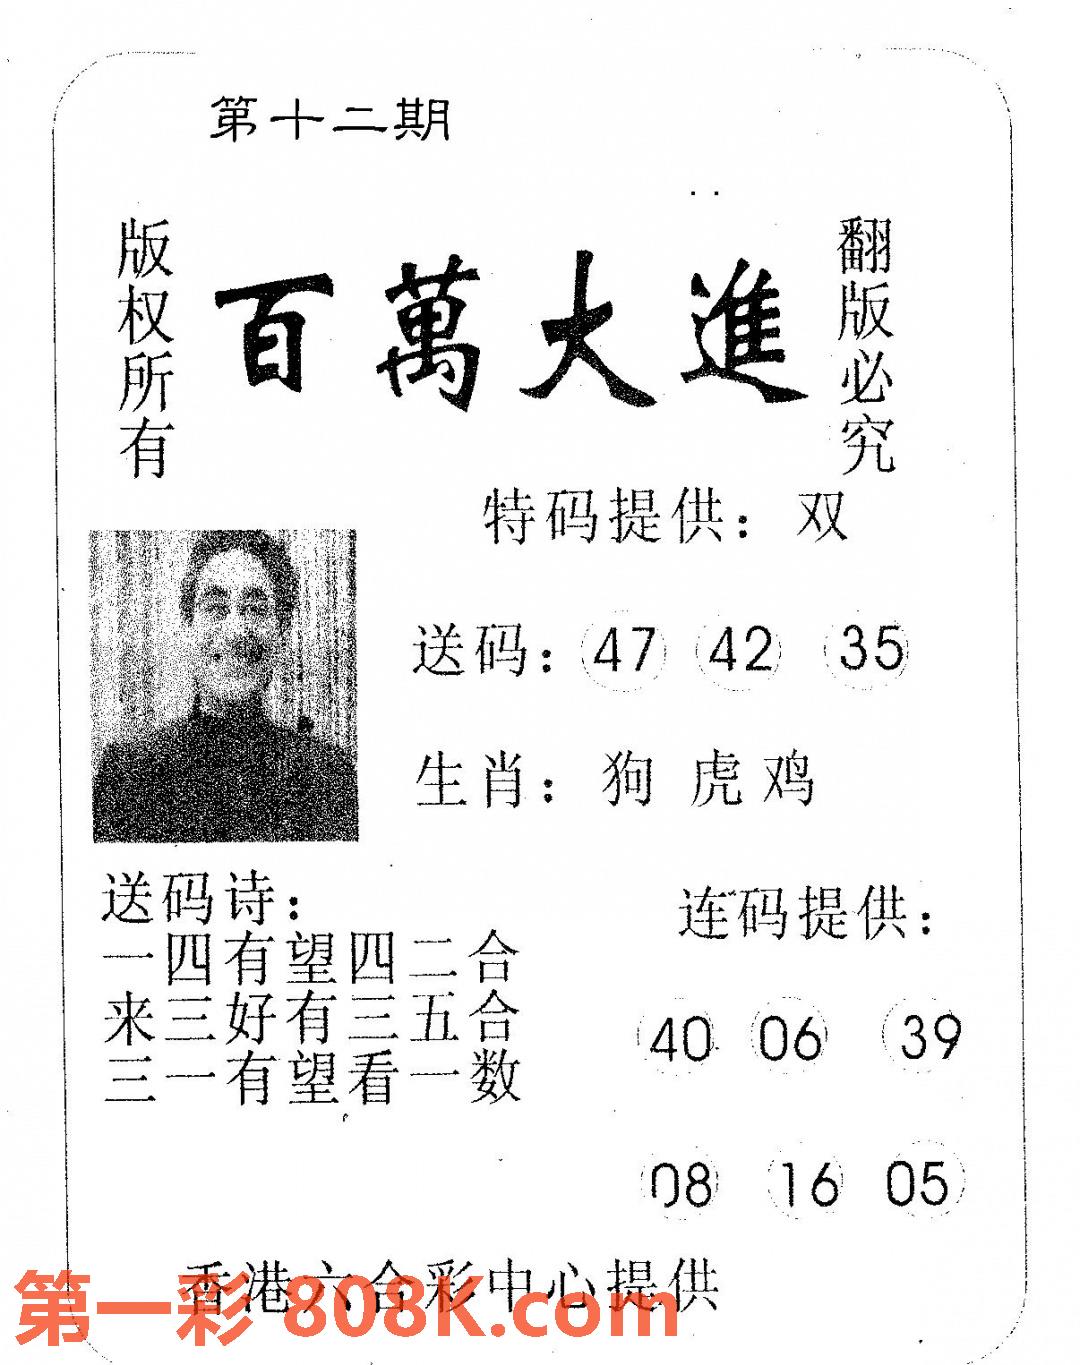 第十二期
版权所有
百萬大進
翻版必究
特码提供：双
送码：47 42 35
生肖：狗 虎 鸡
送码诗：
一四有望四二合
来三好有三五合
三一有望看一数
连码提供：
40 06 39
08 16 05
香港六合彩中心提供
第一彩 808K.com